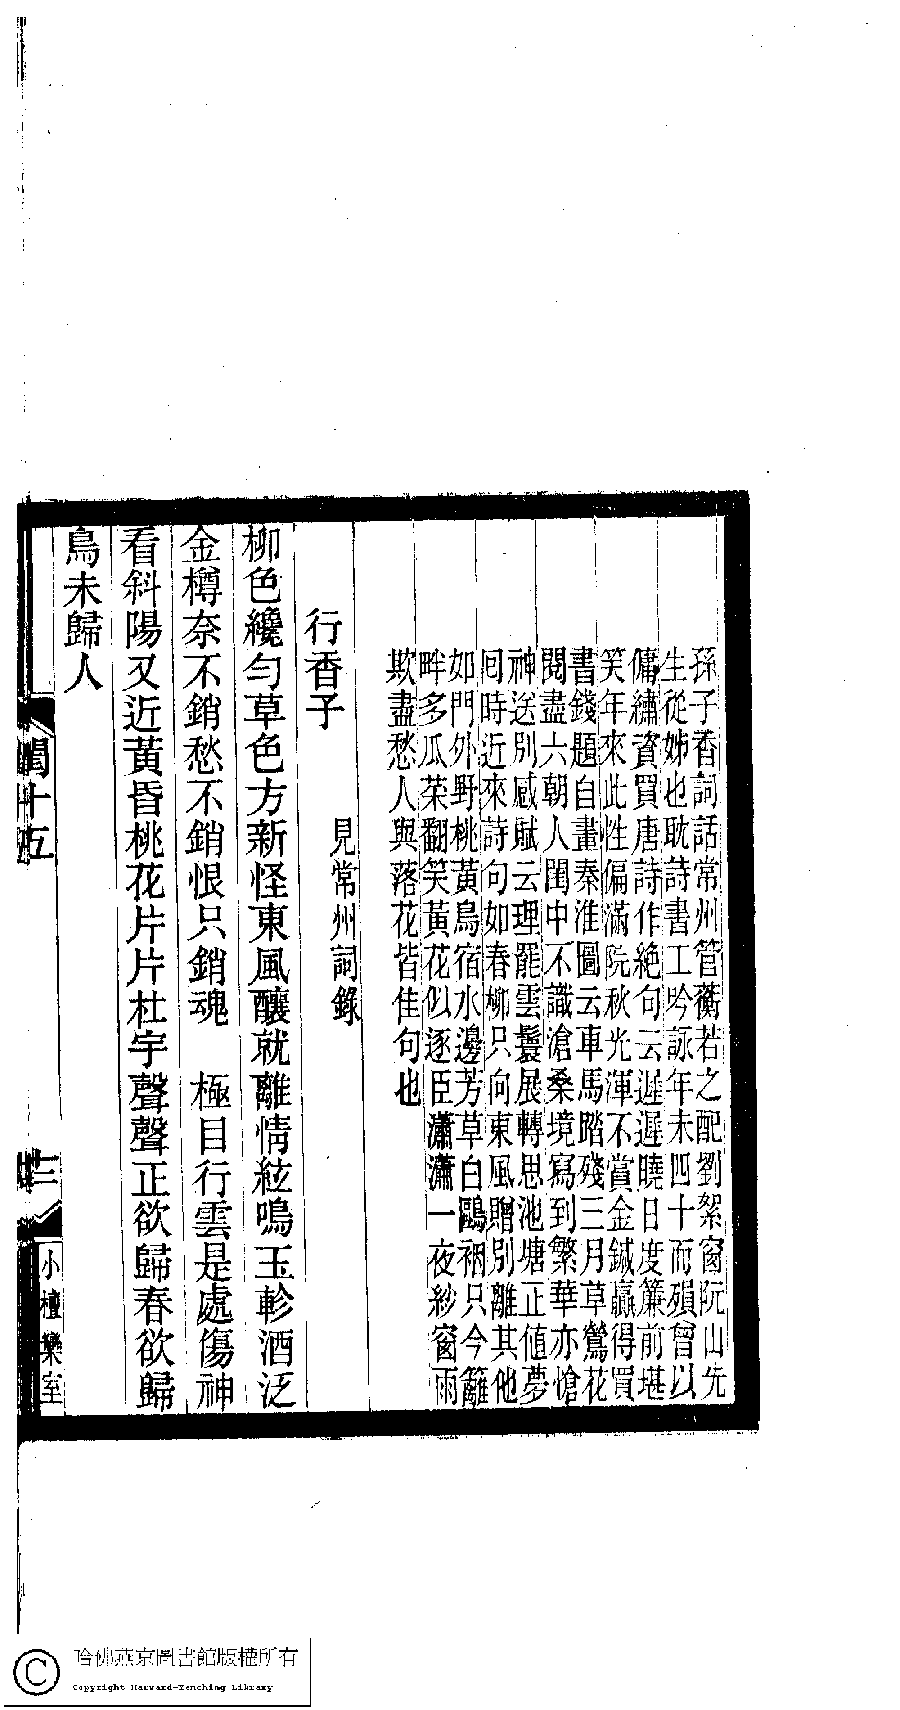 孫子香詞話常州管蘅若之配劉絮窗阮山先
生從姊也耽詩書工吟詠年未四十而殞曾以
傭繡資買唐詩作絶句云遲遲曉日度簾前堪
笑年來此性偏滿院秋光渾不賞金鍼贏得買
書錢題自畫秦淮圖云車馬踏殘三月草鶯花
閱盡六朝人閨中不識滄桑境寫到繁華亦愴
神送別感賦云理罷雲鬟展轉思池塘正値夢
回時近來詩句如春柳只向東風贈別離其他
如門外野桃黃鳥宿水邊芳草白鷗裀只今籬
畔多瓜菜翻笑黃花似逐臣瀟瀟一夜紗窗雨
欺盡愁人與落花皆佳句也
行香子
見常州詞錄
柳色纔勻草色方新怪東風釀就離情絃鳴玉軫酒泛
金樽奈不銷愁不銷恨只銷魂　極目行雲是處傷神
看斜陽又近黃昏桃花片片杜宇聲聲正欲歸春欲歸
鳥未歸人
閨十五
三
小檀欒室
哈佛燕京圖書館版權所有
Copyright Harvard-Yenching Library